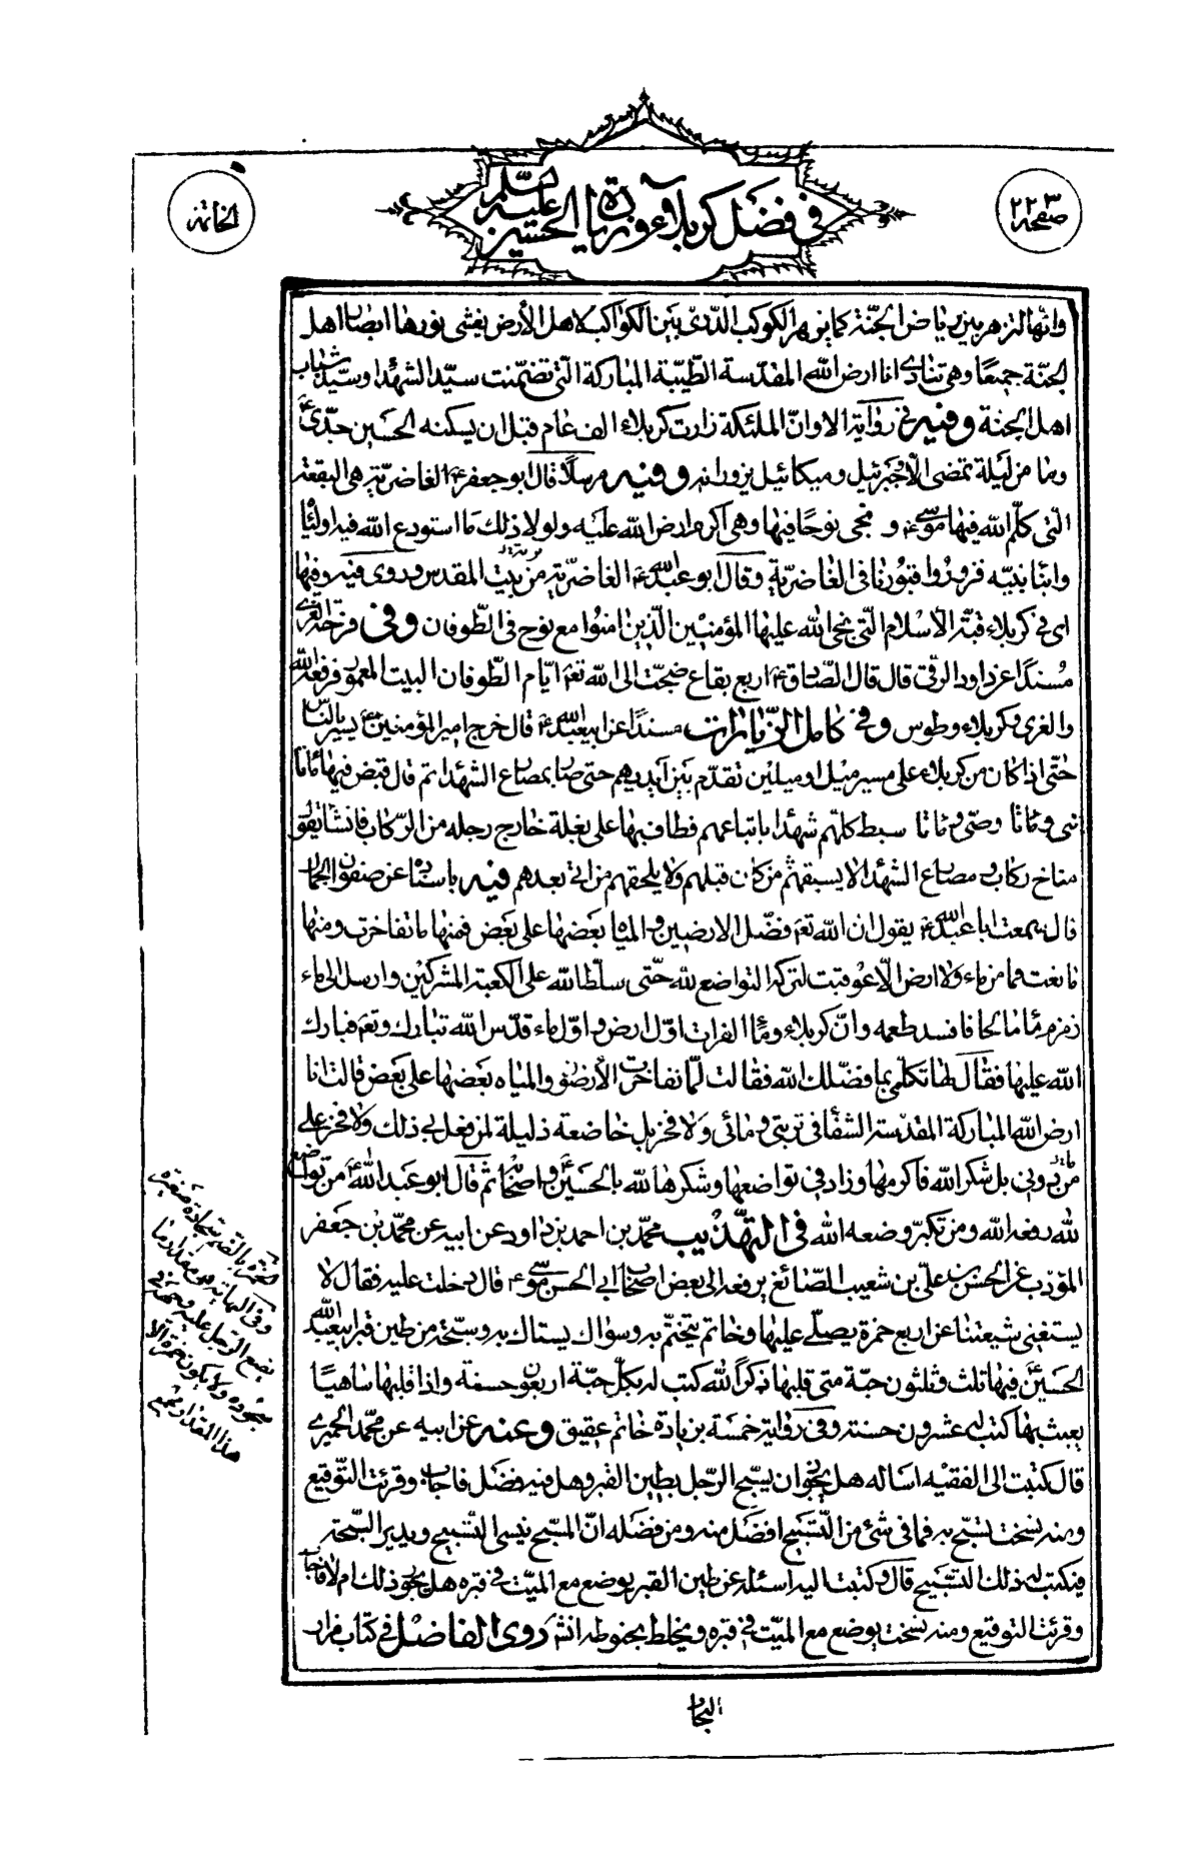 صفحه ٢٢٣
في فضل كربلاء وزيارة الحسين عليه السلام
الخاتمة
وانها لتزهر بين رياض الجنّة كما يزهر الكوكب الدّرّى بين الكواكب لاهل الأرض يغشى نورها ابصار اهل
الجنّة جميعًا وهى تنادى انا ارض الله المقدّسة الطّيّبة المباركة الّتى تضمّنت سيّد الشهداء وسيّد شباب
اهل الجنة وفيه فى رواية الا وانّ الملئكة زارت كربلاء الف عام قبل ان يسكنه الحسين جدّى ع
وما من ليلة تمضى الّا وجبرئيل وميكائيل يزورانه وفيه مرسلًا قال ابو جعفر ع الغاضريّة هى البقعة
الّتى كلّم الله فيها موسى ع و نجى نوحًا فيها وهى اكرم ارض الله عليه ولولا ذلك ما استودع الله فيه اوليائه
وابناء نبيّه فزوروا قبورنا فى الغاضريّة وقال ابو عبد الله ع الغاضريّة تربة من بيت المقدس وروى فيه وفيها
اى فى كربلاء قبّة الاسلام الّتى نجى الله عليها المؤمنين الّذين امنوا مع نوح فى الطّوفان وفى فرحة الغرى
مُسندًا عن داود الرقى قال قال الصّادق ع اربع بقاع ضجّت الى الله تعالى ايّام الطّوفان البيت المعمور فرفعه الله
والغرى وكربلاء وطوس وفى كامل الزّيارات مسندًا عن ابى عبد الله ع قال خرج امير المؤمنين ع يسير بالنّاس
حتّى اذا كان من كربلاء على مسير ميل او ميلين تقدّم بين ايديهم حتى صار بمصارع الشهداء ثم قال قبض فيها مائتا
نبى ومائتا وصىّ ومائتا سبط كلّهم شهداء باتباعهم فطاف بها على بغلة خارج رجله من الرّكاب فانشأ يقول
مناخ ركاب ومصارع الشهداء لا يسبقهم من كان قبلهم ولا يلحقهم من اتى بعدهم فيه باسناده عن صفوان الجمال
قال سمعت ابا عبد الله ع يقول ان الله تعالى فضّل الارضين والمياه بعضها على بعض فمنها ما تفاخرت ومنها
ما بغت فما من ماء ولا ارض الّا عوقبت لتركه التواضع لله حتّى سلّط الله على الكعبة المشركين وارسل الى ماء
زمزم ماء مالحا فافسد طعمه وانّ كربلاء وماء الفرات اوّل ارض واوّل ماء قدّس الله تبارك وتعالى فبارك
الله عليها فقال لها تكلّمى بما فضّلك الله فقالت لمّا تفاخرت الأرضون والمياه بعضها على بعض قالت انا
ارض الله المباركة المقدّسة الشفاء فى تربتى ومائى ولا فخر بل خاضعة ذليلة لمن فعل بى ذلك ولا فخر على
من دونى بل شكرًا لله فاكرمها وزاد فى تواضعها وشكرها لله بالحسين ع واصحابه ثم قال ابو عبد الله ع من تواضع
لله رفعه الله ومن تكبّر وضعه الله فى التهذيب محمّد بن احمد بن داود عن ابيه عن محمّد بن جعفر
المؤدب عن الحسن بن علىّ بن شعيب الصّائغ يرفعه الى بعض اصحاب ابى الحسن موسى ع قال دخلت عليه فقال لا
يستغنى شيعتنا عن اربع خمرة يصلّى عليها وخاتم يتختّم به وسواك يستاك به وسبّحة من طين قبر ابى عبد الله
الحسين ع فيها ثلث وثلثون حبّة متى قلبها ذكرًا لله كتب له بكلّ حبّة اربعون حسنة واذا قلبها ساهيًا
يعبث بها كتب له عشرون حسنة وفى رواية خمسة بزيادة خاتم عقيق وعنه عن ابيه عن محمّد الحميرى
قال كتبت الى الفقيه اسأله هل يجوز ان يسبّح الرّجل بطين القبر وهل فيه فضل فاجاب وقرئت التّوقيع
ومنه نسخت تسبّح به فما فى شئ من التّسبيح افضل منه ومن فضله انّ المسبّح ينسى التّسبيح ويدير السّبحة
فيكتب له ذلك التّسبيح قال وكتبت اليه اسئله عن طين القبر يوضع مع الميّت فى قبره هل يجوز ذلك ام لا فاجاب
وقرئت التوقيع ومنه نسخت يوضع مع الميّت فى قبره ويخلط بحنوطه انش روى الفاضل فى كتاب مزار
البحار
الخمرة بالضم سجادة صغيرة
وفى النهاية هى مقدار ما
يضع الرّجل عليه وجهه فى
سجوده ولا يكون خمرة الا
هذا المقدار